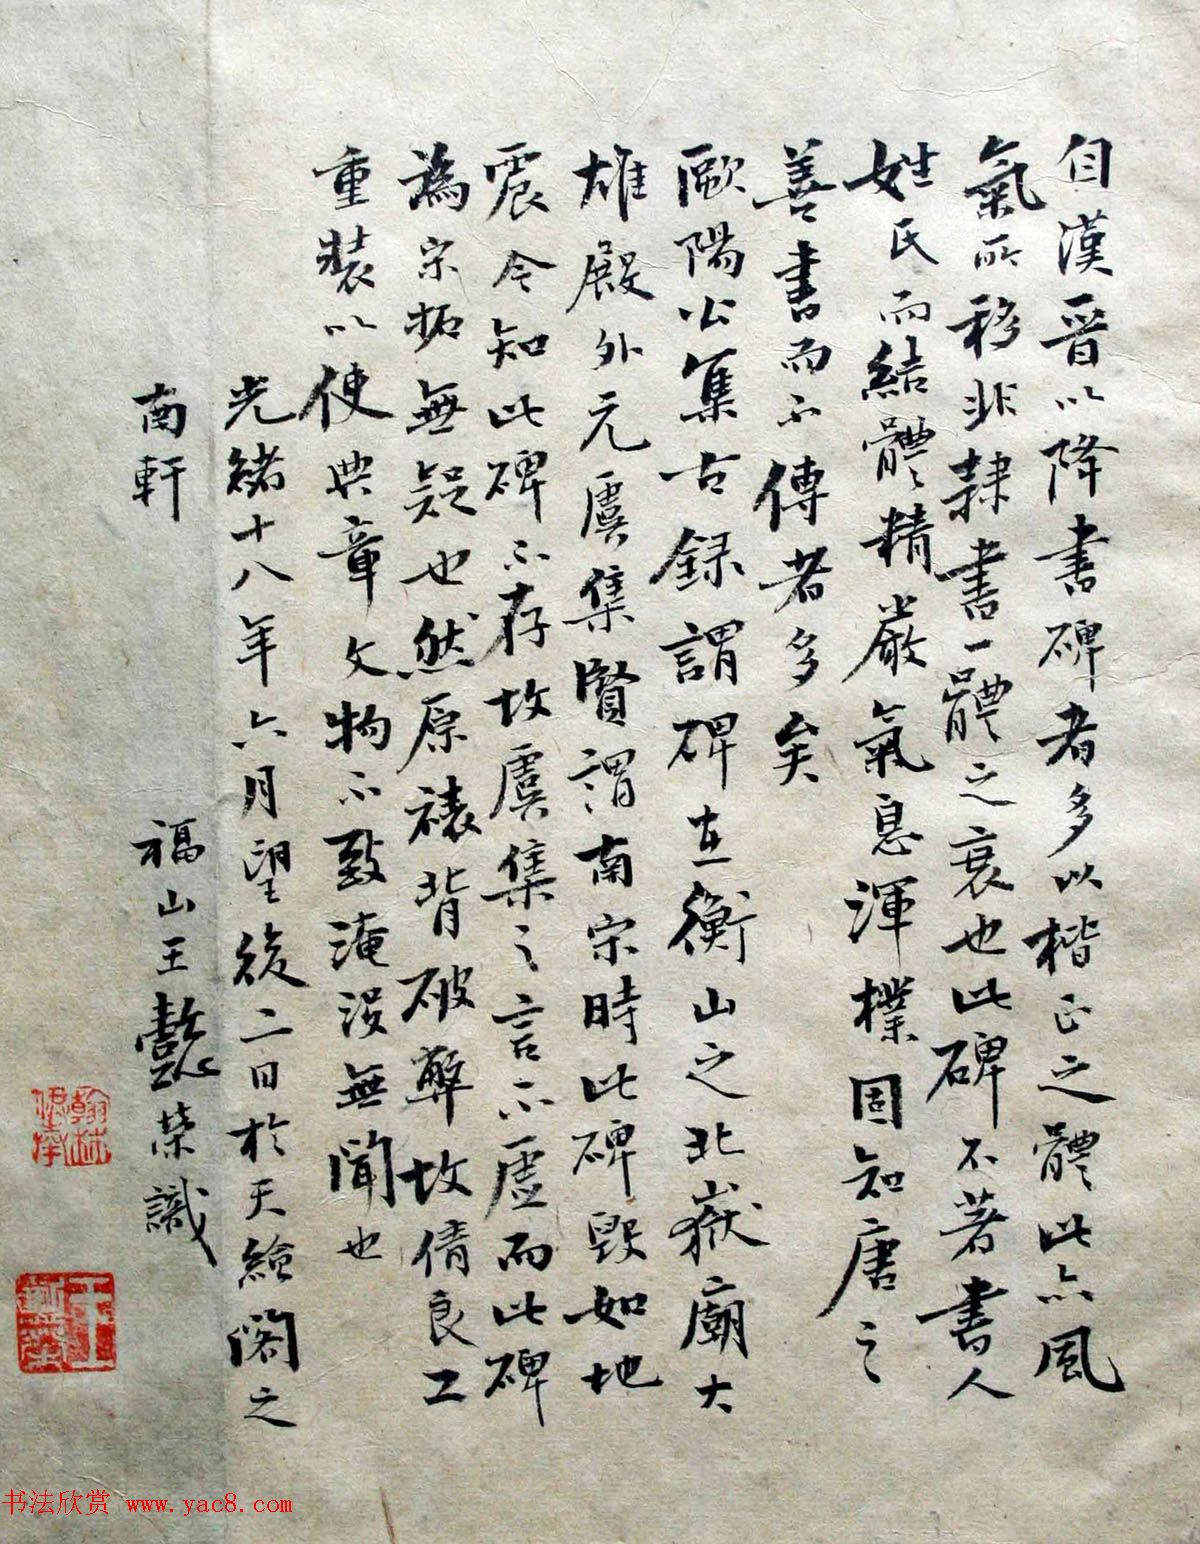 自漢晉以降書碑者多以楷正之體此亦風
氣所移非隸書一體之衰也此碑不著書人
姓氏而結體精嚴氣息渾樸固知唐之
善書而不傳者多矣
歐陽公集古録謂碑在衡山之北嶽廟大
雄殿外元虞集賢謂南宋時此碑毀如地
震今知此碑不存故虞集之言不虛而此碑
為宋拓無疑也然原裱背破弊故倩良工
重裝以使典章文物不致淹沒無聞也
光緒十八年六月望後二日於天繪閣之
南軒
福山王懿榮識
翰林供奉
王懿榮
书法欣赏 www.yac8.com